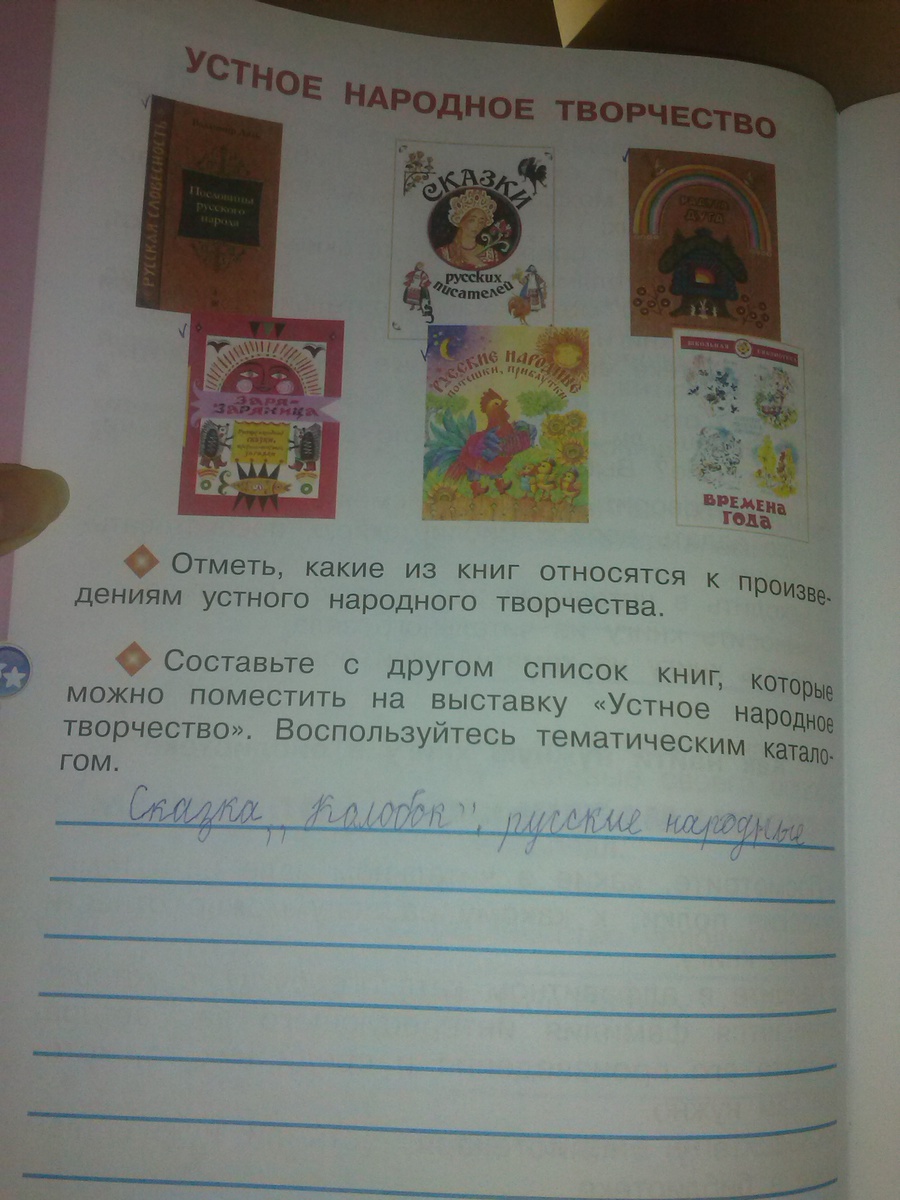 УСТНОЕ НАРОДНОЕ ТВОРЧЕСТВО
РУССКАЯ СЛОВЕСНОСТЬ
Владимир Даль
Пословицы
русского
народа
СКАЗКИ
русских
писателей
РАДУГА
ДУГА
ЗАРЯ-
ЗАРЯНИЦА
сказки,
РУССКИЕ НАРОДНЫЕ
ПОТЕШКИ, ПРИБАУТКИ
ШКОЛЬНАЯ БИБЛИОТЕКА
ВРЕМЕНА
ГОДА
Отметь, какие из книг относятся к произве-
дениям устного народного творчества.
Составьте с другом список книг, которые
можно поместить на выставку «Устное народное
творчество». Воспользуйтесь тематическим катало-
гом.
Сказка „Колобок", русские народные